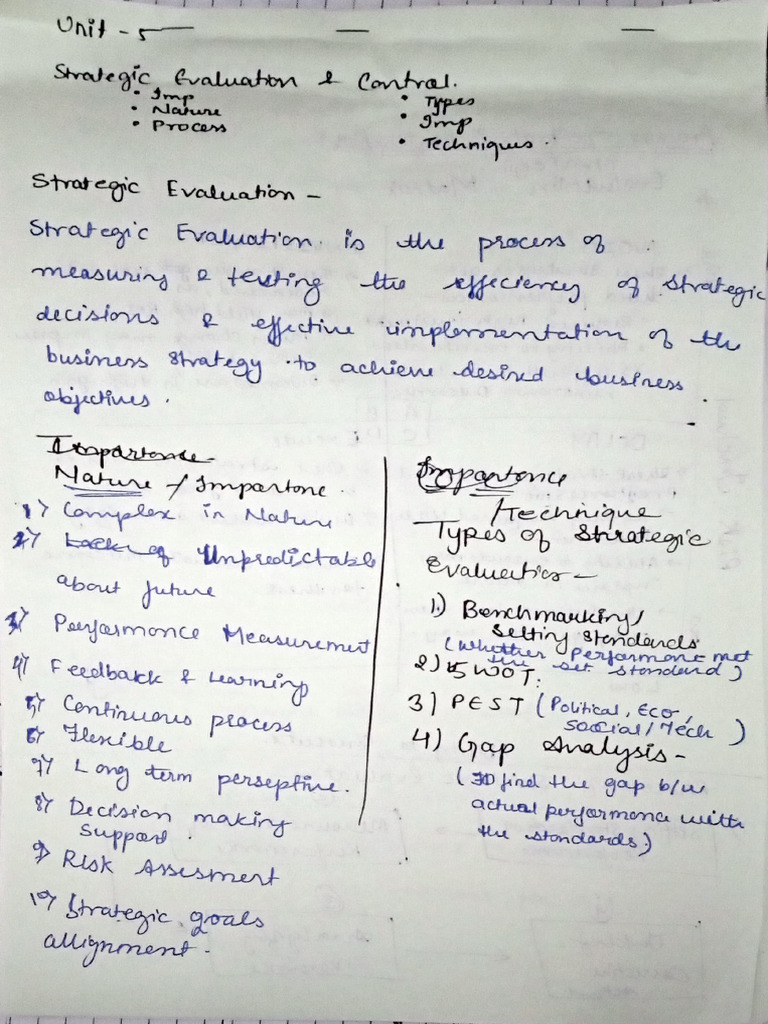 Unit - 5
Strategic Evaluation & Control.
• Imp
• Nature
• Process
• Types
• Imp
• Techniques.
Strategic Evaluation -
Strategic Evaluation is the process of
measuring & testing the effeciency of strategic
decisions & effective implementation of the
business strategy to achieve desired business
objectives.
Importance
Nature / Importance.
1) Complex in Nature
2) Lack of Unpredictable
about future
3) Performance Measurement
4) Feedback & Learning
5) Continuous process
6) Flexible
7) Long term perseptive.
8) Decision making
Support.
9) Risk Assesment
10) Strategic goals
allignment.
Importance
/Technique
Types of Strategic
Evaluation -
1.) Benchmarking/
Setting Standards
(whether Performance met
the set standard)
2) SWOT:
3) PEST (Political, Eco,
Social/Tech)
4) Gap Analysis -
(To find the gap b/w
actual performance with
the standards)